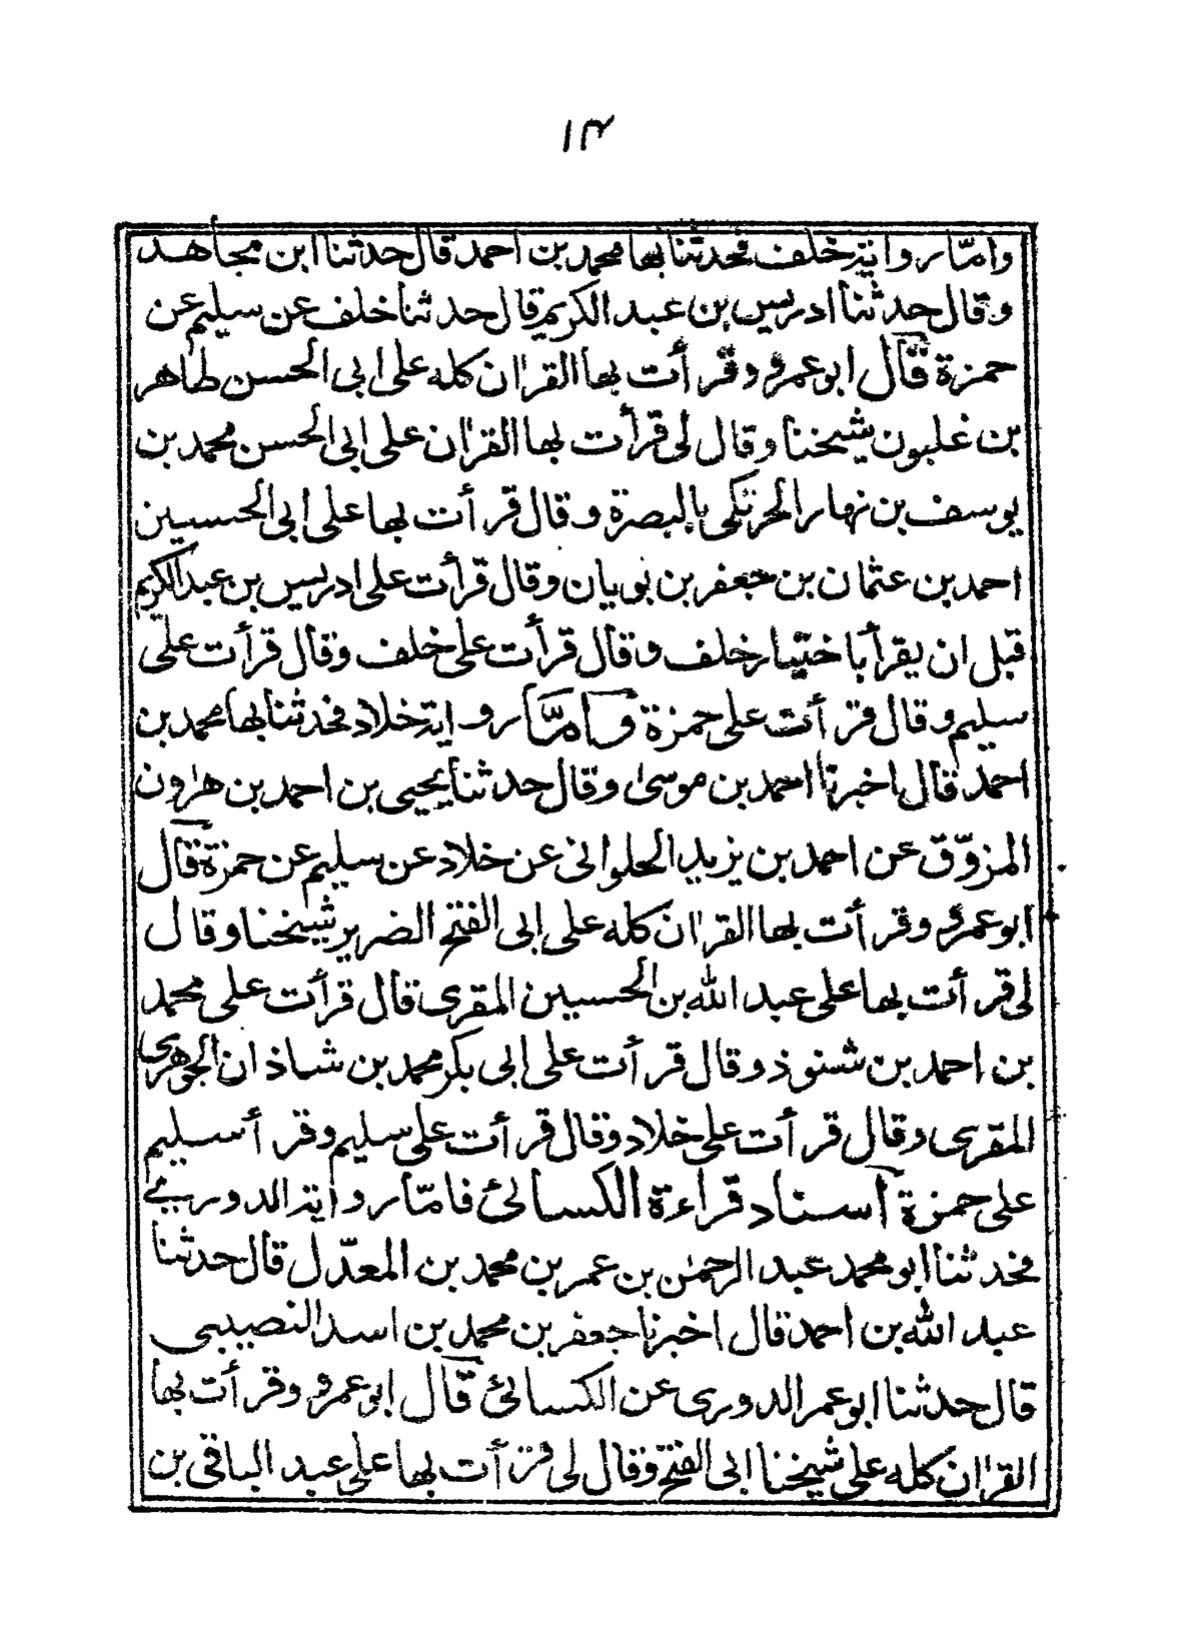 ١٣
وامّا رواية خلف فحدثنا بها محمد بن احمد قال حدثنا ابن مجاهد
وقال حدثنا ادريس بن عبد الكريم قال حدثنا خلف عن سليم عن
حمزة قال ابو عمرو وقرأت بها القرٰان كله على ابى الحسن طاهر
بن غلبون شيخنا وقال لى قرأت بها القرٰان على ابى الحسن محمد بن
يوسف بن نهار الحرتكى بالبصرة وقال قرأت بها على ابى الحسيين
احمد بن عثمان بن جعفر بن بويان وقال قرأت على ادريس بن عبد الكريم
قبل ان يقرأ باختيار خلف وقال قرأت على خلف وقال قرأت على
سليم وقال قرأت على حمزة وامّا رواية خلاد فحدثنا بها محمد بن
احمد قال اخبرنا احمد بن موسىٰ وقال حدثنا يحيى بن احمد بن هٰرون
المزوّق عن احمد بن يزيد الحلوانى عن خلاد عن سليم عن حمزة قال
ابو عمرو وقرأت بها القرٰان كله على ابى الفتح الضرير شيخنا وقال
لى قرأت بها على عبد الله بن الحسيين المقرى قال قرأت على محمد
بن احمد بن شنوذ وقال قرأت على ابى بكر محمد بن شاذان الجوهرى
المقرى وقال قرأت على خلاد وقال قرأت على سليم وقرأ سليم
على حمزة اسناد قراءة الكسائئ فامّا رواية الدورى
فحدثنا ابو محمد عبد الرحمٰن بن عمر بن محمد بن المعدّل قال حدثنا
عبد الله بن احمد قال اخبرنا جعفر بن محمد بن اسد النصيبى
قال حدثنا ابو عمر الدورى عن الكسائئ قال ابو عمرو وقرأت بها
القرٰان كله على شيخنا ابى الفتح وقال لى قرأت بها على عبد الباقى بن